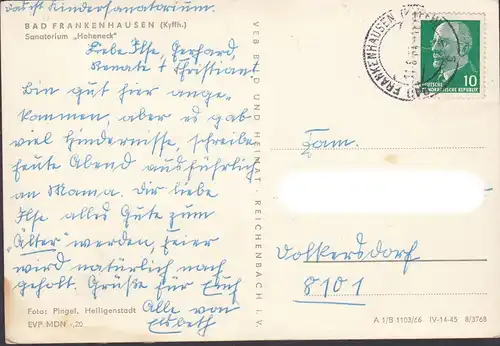 Das ist Kindersanatorium.
BAD FRANKENHAUSEN (Kyffh.)
Sanatorium „Hoheneck"
Liebe Ilse, Gerhard,
Renate + Christiane!
Bin gut hier ange-
kommen, aber es gab
viel Hindernisse, schreibe
heute Abend ausführlich
an Mama. Dir liebe
Ilse alles Gute zum
„Älter" werden, Feier
wird natürlich nach
geholt. Grüße für Euch
Alle von
Elsbeth
Foto: Pingel, Heiligenstadt
EVP MDN -,20
VEB BILD UND HEIMAT · REICHENBACH I. V.
BAD FRANKENHAUSEN
DEUTSCHE
DEMOKRATISCHE REPUBLIK
10
Fam.
Volkersdorf
8101
A 1/B 1103/66 IV-14-45 8/3768